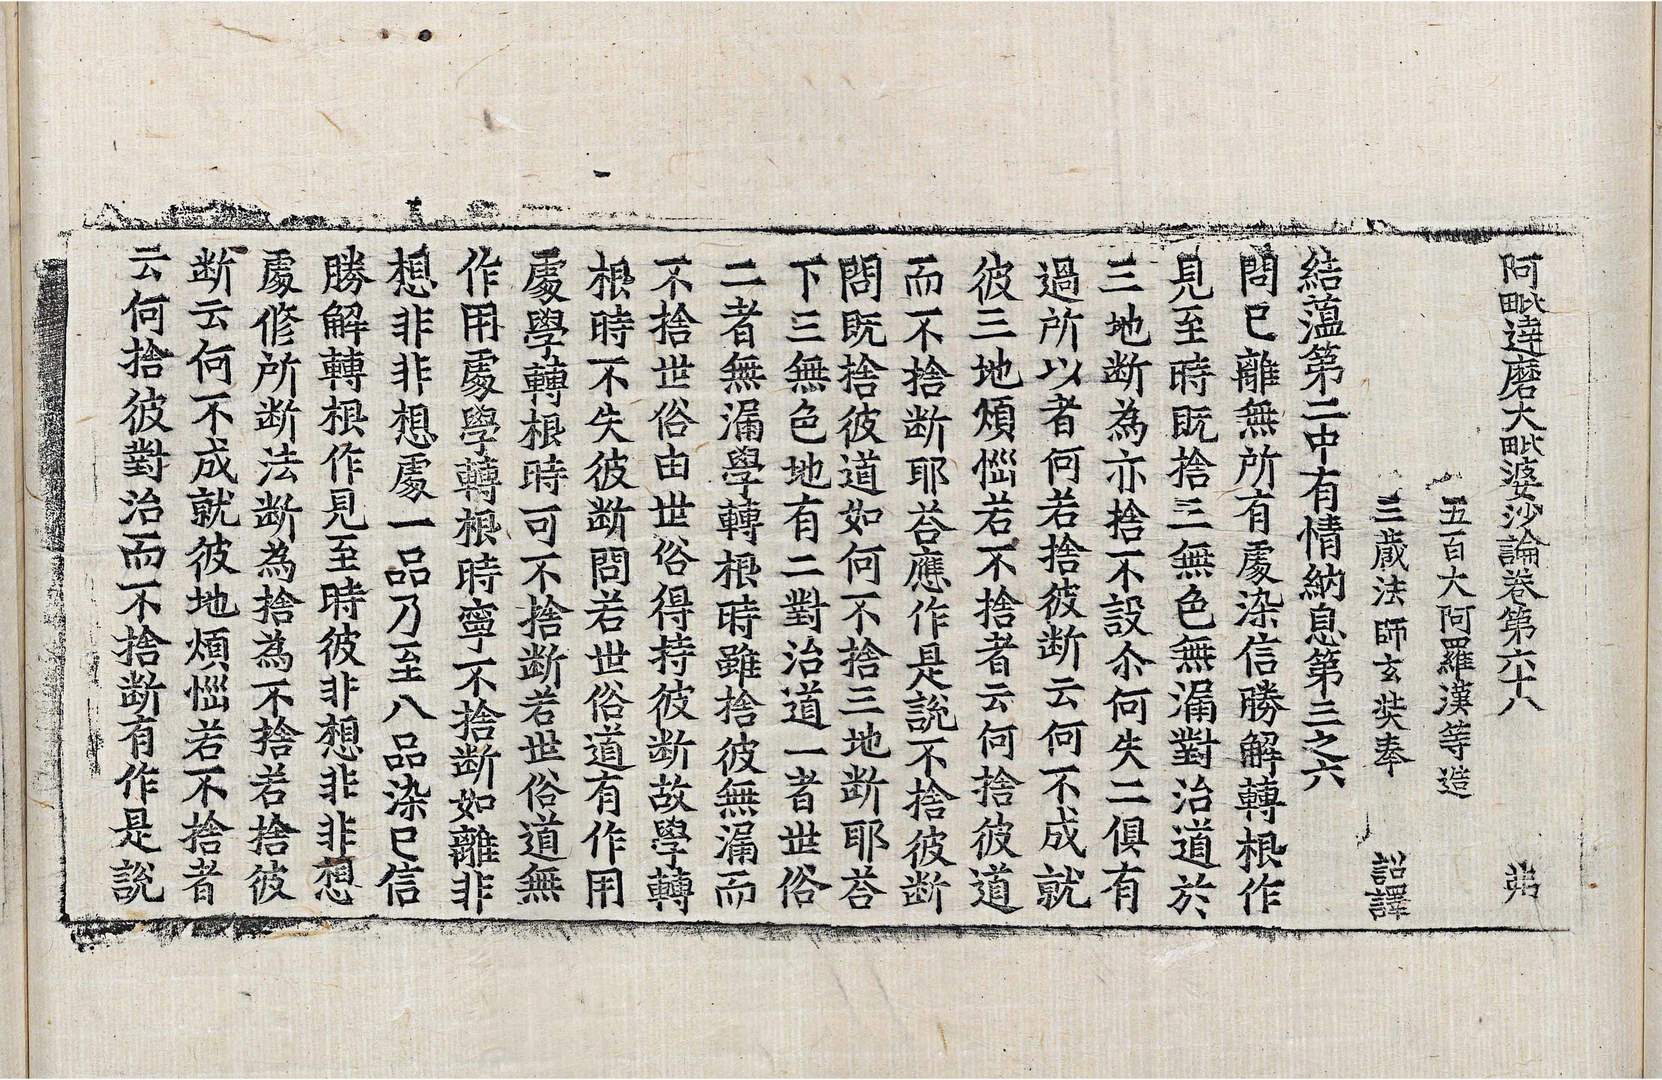 阿毗達磨大毗婆沙論卷第六十八 弟
五百大阿羅漢等造
三藏法師玄奘奉 詔譯
結蕰第二中有情納息第三之六
問已離無所有處染信勝解轉根作
見至時既捨三無色無漏對治道於
三地断為亦捨不設尒何失二俱有
過所以者何若捨彼断云何不成就
彼三地煩惱若不捨者云何捨彼道
而不捨断耶荅應作是說不捨彼断
問既捨彼道如何不捨三地断耶荅
下三無色地有二對治道一者世俗
二者無漏學轉根時雖捨彼無漏而
不捨世俗由世俗得持彼断故學轉
根時不失彼断問若世俗道有作用
處學轉根時可不捨断若世俗道無
作用處學轉根時寧不捨断如離非
想非非想處一品乃至八品染已信
勝解轉根作見至時彼非想非非想
處修所断法断為捨為不捨若捨彼
断云何不成就彼地煩惱若不捨者
云何捨彼對治而不捨断有作是說